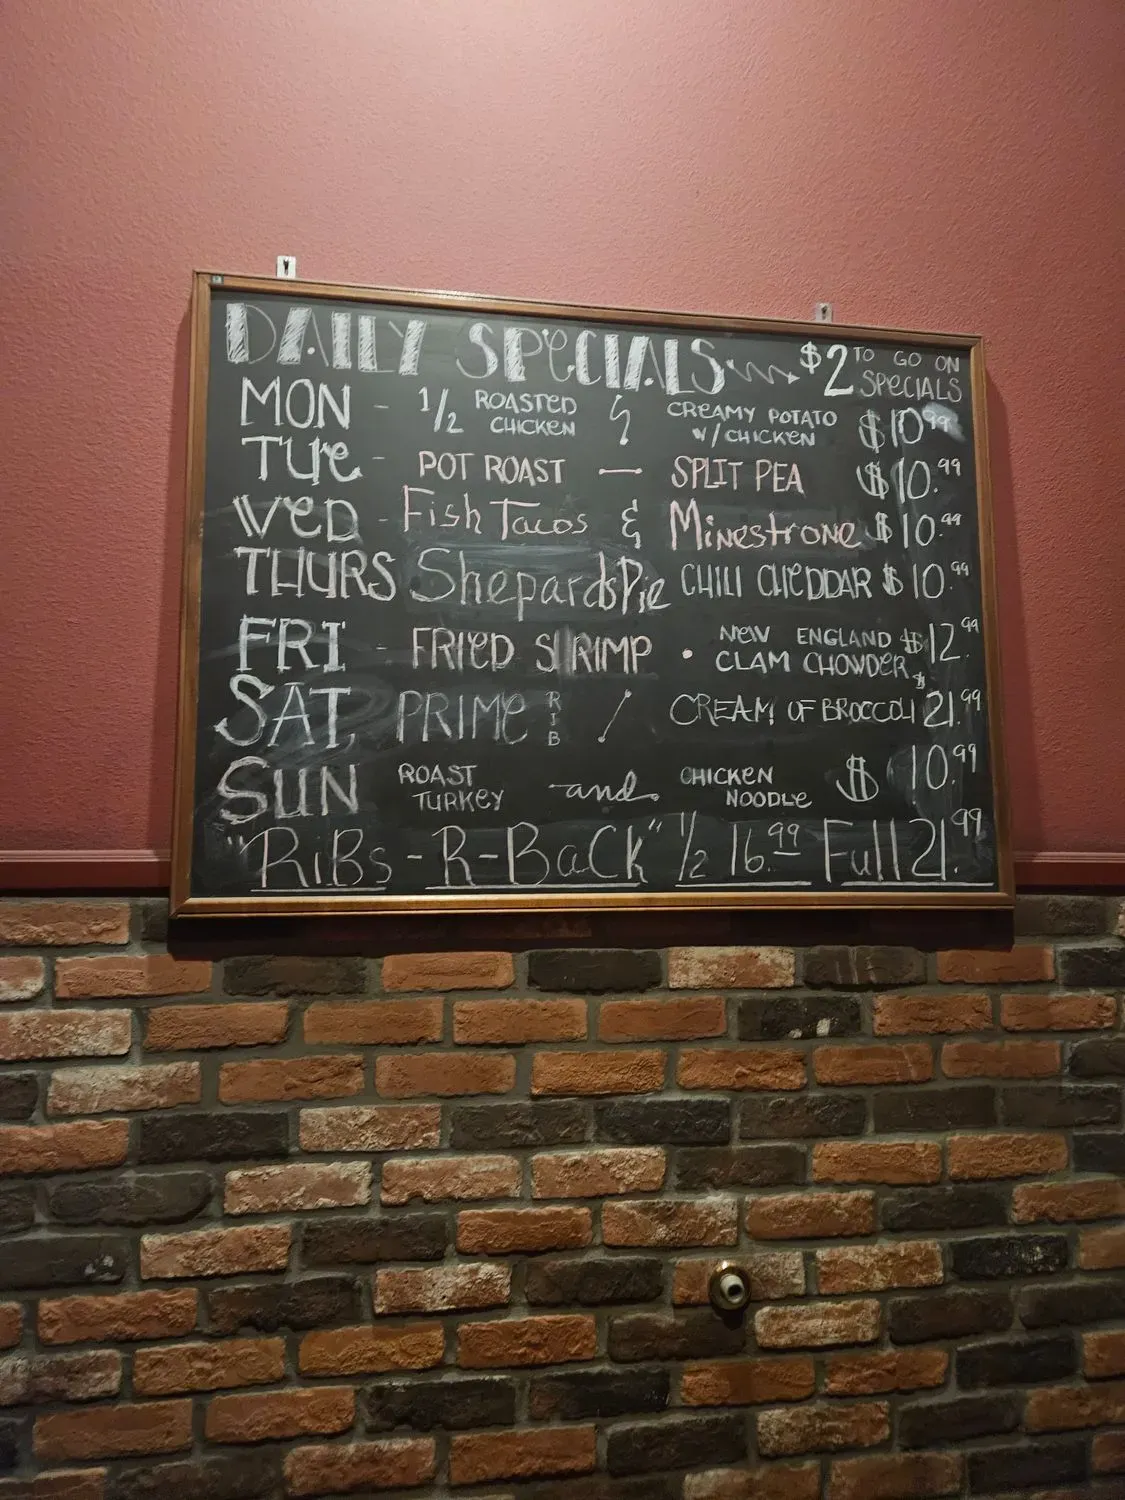 DAILY SPECIALS $2 TO GO ON SPECIALS
MON - 1/2 ROASTED CHICKEN CREAMY POTATO W/ CHICKEN $10.99
TUE - POT ROAST — SPLIT PEA $10.99
WED - Fish Tacos & Minestrone $10.99
THURS Shepards Pie CHILI CHEDDAR $10.99
FRI - FRIED SHRIMP • NEW ENGLAND CLAM CHOWDER $12.99
SAT, PRIME RIB / CREAM OF BROCCOLI $21.99
SUN ROAST TURKEY and CHICKEN NOODLE $10.99
"RiBs - R-BaCk" 1/2 16.99 Full 21.99